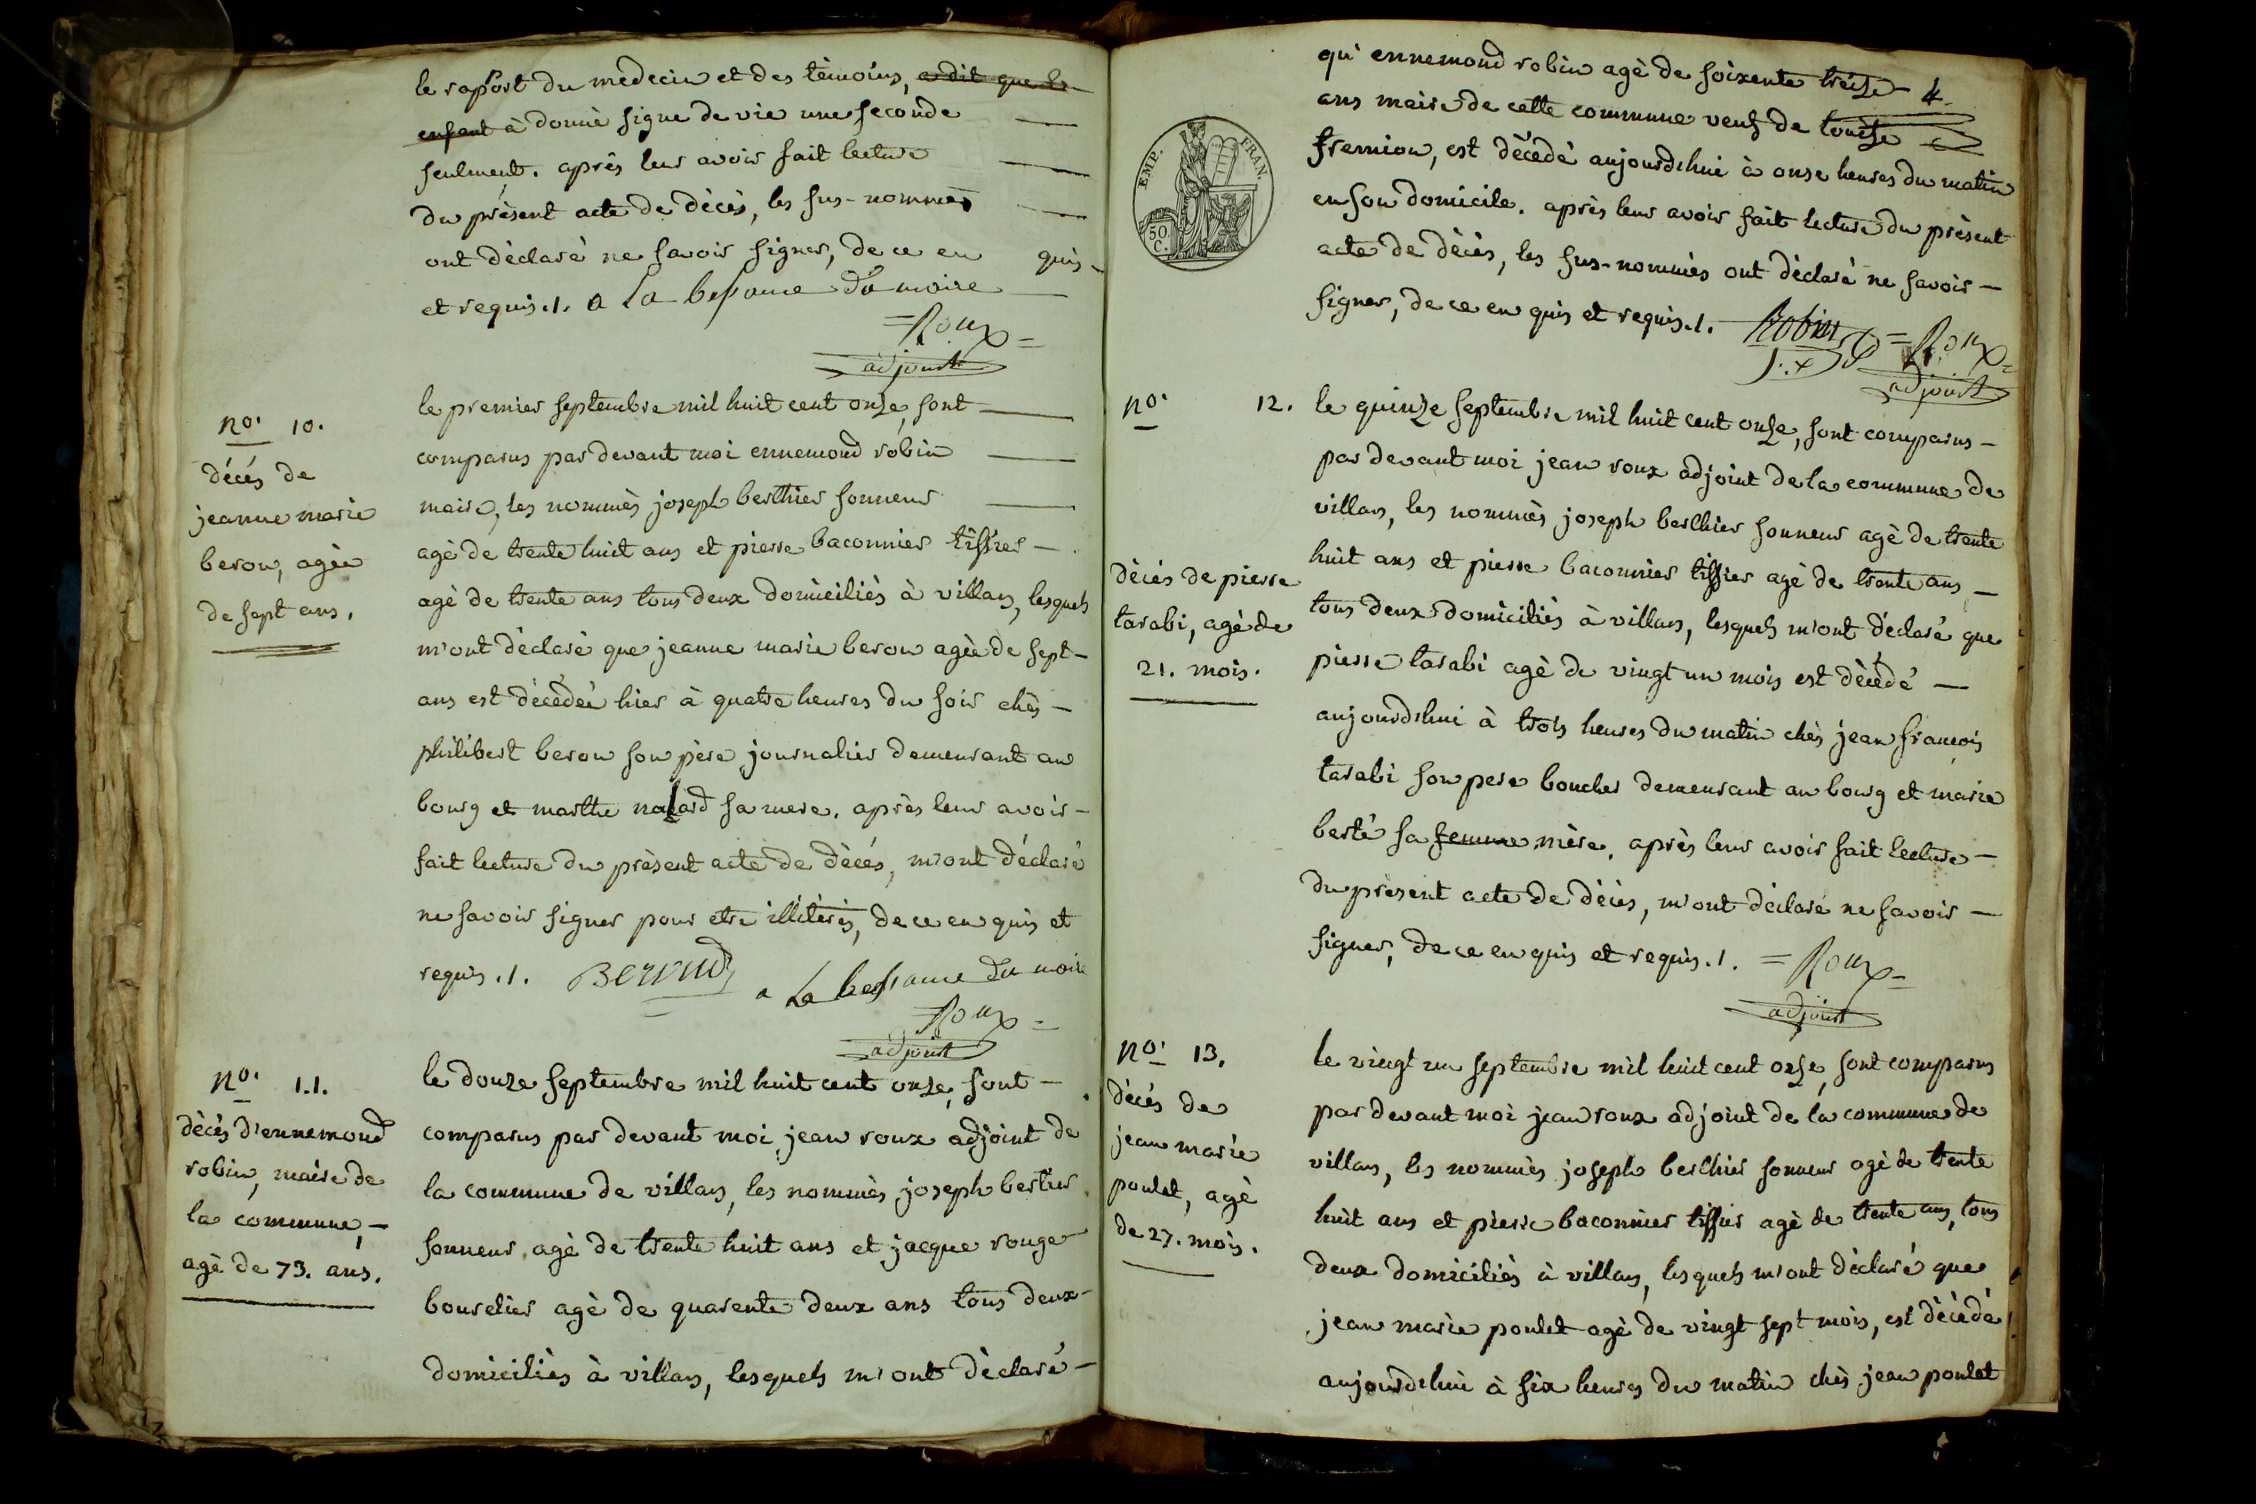 le raport du medecin et des tèmoins, a dit que le
enfant à donnè signe de vie une seconde
seulment. après leur avoir fait lecture
du prèsent acte de dècès, les sus-nommès
ont dèclarè ne savoir signer, de ce en quis
et requis ./. a la bessance du maire
=Roux=
adjoint
no. 10.
dècès de
jeanne marie
beron, agèe
de sept ans.
le premier septembre mil huit cent onze, sont
comparus par devant moi ennemond robin
maire, les nommès joseph berthier sonneur
agè de trente huit ans et pierre baconnier tissier
agè de trente ans tous deux domiciliès à villars, lesquels
m'ont dèclarè que jeanne marie beron agèe de sept
ans est dècèdèe hier à quatre heures du soir chès
philibert beron son père journalier demeurant au
bourg et marthe nalard sa mere. après leur avoir
fait lecture du prèsent acte de dècès, m'ont dèclarè
ne savoir signer pour etre illiterès, de ce en quis et
requis ./. a la bessance du maire
Roux=
adjoint
no. 11.
dècès d'ennemond
robin, maire de
la commune,
agè de 73. ans.
le douze septembre mil huit cent onze, sont
comparus par devant moi jean roux adjoint de
la commune de villars, les nommès joseph bertier
sonneur agè de trente huit ans et jacque rouge
bourelier agè de quarente deux ans tous deux
domiciliès à villars, lesquels m'ont dèclarè
qu'ennemond robin agè de soixente treize
ans maire de cette commune veuf de louise
fremion, est dècèdè aujourdhui à onze heures du matin
en son domicile. après leur avoir fait lecture du prèsent
acte de dècès, les sus-nommès ont dèclarè ne savoir
signer, de ce en quis et requis ./. Robin =Roux=
adjoint
EMP. FRAN.
50 C.
no. 12.
dècès de pierre
tarabi, agè de
21. mois.
le quinze septembre mil huit cent onze, sont comparus
par devant moi jean roux adjoint de la commune de
villars, les nommès joseph berthier sonneur agè de trente
huit ans et pierre baconnier tissier agè de trente ans
tous deux domiciliès à villars, lesquels m'ont dèclarè que
pierre tarabi agè de vingt un mois est dècèdè
aujourdhui à trois heures du matin chès jean francois
tarabi son pere boucher demeurant au bourg et marie
bertè sa femme mère. après leur avoir fait lecture
du prèsent acte de dècès, m'ont dèclarè ne savoir
signer, de ce en quis et requis ./. =Roux=
adjoint
no. 13.
dècès de
jean marie
poulet, agè
de 27. mois.
le vingt un septembre mil huit cent onze, sont comparus
par devant moi jean roux adjoint de la commune de
villars, les nommès joseph berthier sonneur agè de trente
huit ans et pierre baconnier tissier agè de trente ans, tous
deux domiciliès à villars, lesquels m'ont dèclarè que
jean marie poulet agè de vingt sept mois, est dècèdè
aujourdhui à six heures du matin chès jean poulet